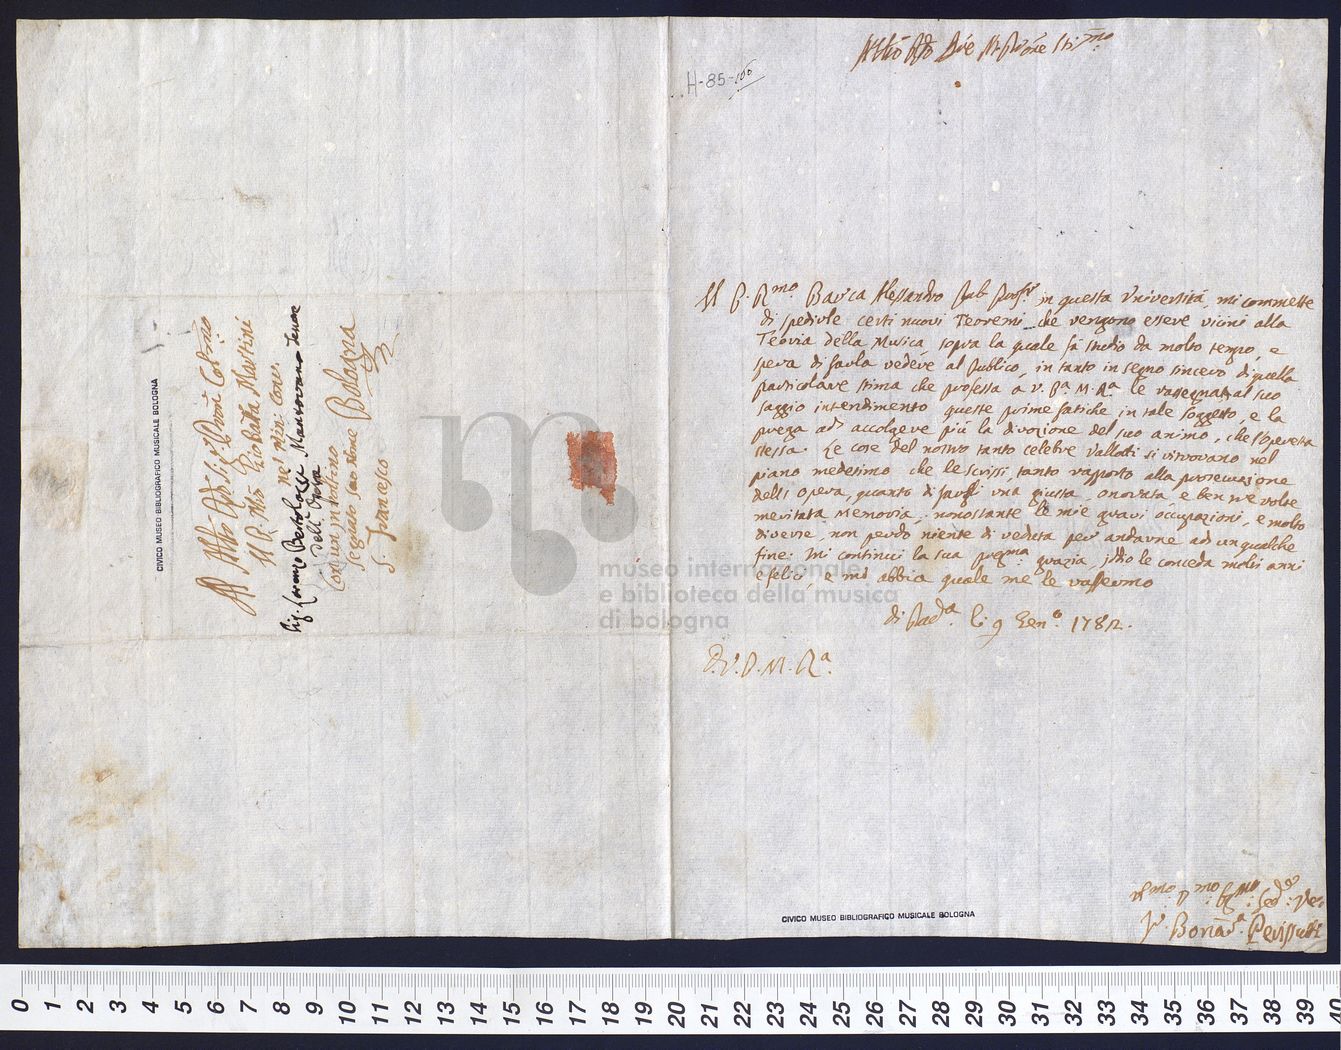 H-85-160
Il P. Rmo Barca Alessandro Pub. Profr. in questa Università, mi commette
di spedirle certi nuovi Teoremi che vengono esser vicini alla
Teoria della Musica, sopra la quale fà studio da molto tempo, e
spera di farla vedere al Publico, in tanto in segno sincero di quella
particolare stima che professa a V. Pa. M. Ra. le rassegna al suo
saggio intendimento queste prime fatiche in tale soggetto e la
prega ad accolgere più la divozione del suo animo, che l'opera
stessa. Le cose del nostro tanto celebre Vallotti si ritrovano nel
piano medesimo che le scrissi, tanto rapporto alla prosecuzione
dell'Opera, quanto di farsi una giusta, onorata e ben tre volte
meritata Memoria; nonostante le mie gravi occupazioni, e molto
diverse, non perdo niente di veduta per andarne ad un qualche
fine. Mi continui la sua pregma. grazia, Iddio le conceda molti anni
e felici, e mi abbia quale me le raffermo
di Pada. li 9 Gen.o 1782.
D. V. P. M. Ra.
Fr. Bonada. Perissutti
Al Molto
Il P. Mro Giobatta Martini
de' Mini. Conv.
Sig. Lorenzo Bertolazzi Mantovano Tenore
dell'Opera
Con un involtino
segnato suo nome Bologna
S. Francesco
CIVICO MUSEO BIBLIOGRAFICO MUSICALE BOLOGNA
CIVICO MUSEO BIBLIOGRAFICO MUSICALE BOLOGNA
museo internazionale
e biblioteca della musica
di bologna
0 1 2 3 4 5 6 7 8 9 10 11 12 13 14 15 16 17 18 19 20 21 22 23 24 25 26 27 28 29 30 31 32 33 34 35 36 37 38 39 40